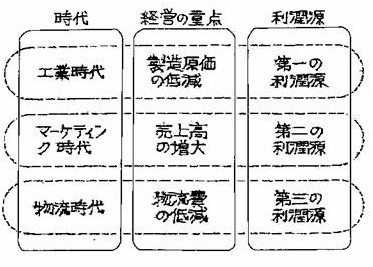 時代 経営の重点 利潤源
工業時代 製造原価の低減 第一の利潤源
マーケティング時代 売上高の増大 第二の利潤源
物流時代 物流費の低減 第三の利潤源